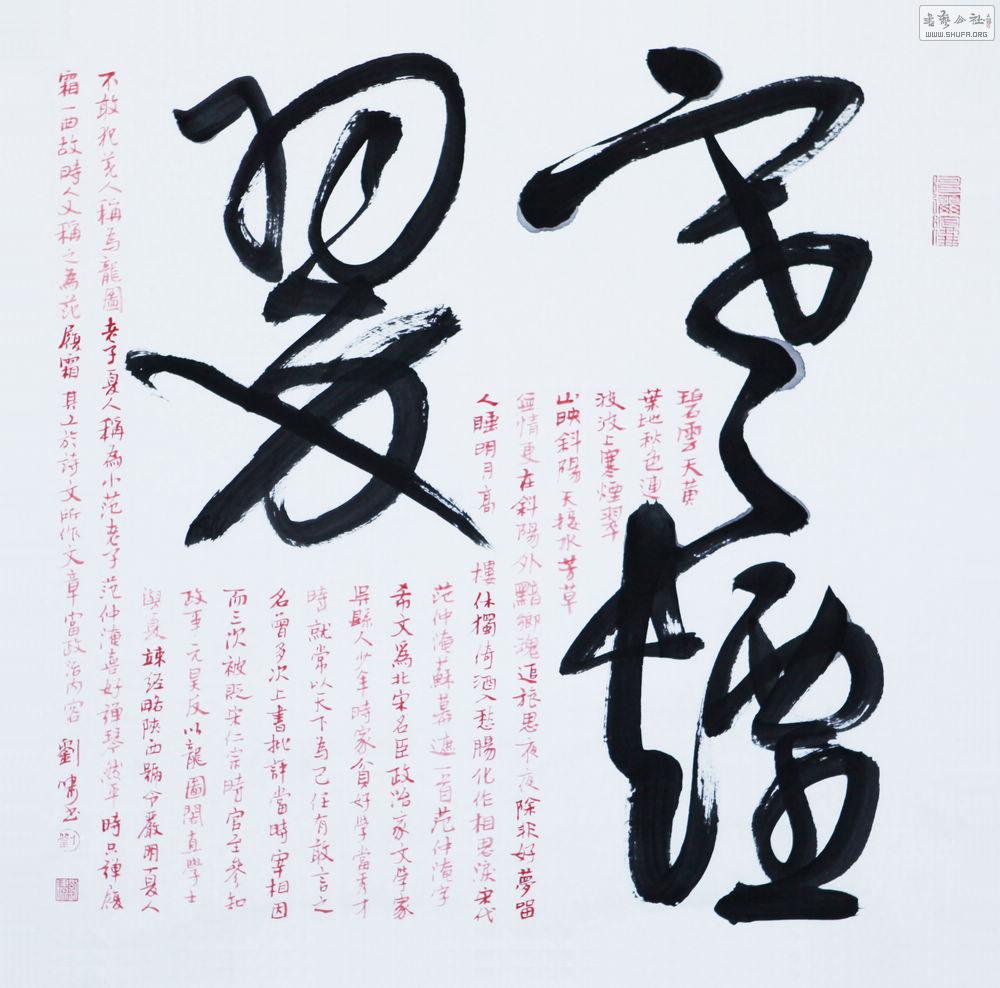 書藝公社
WWW.SHUFA.ORG
寒煙
翠
碧雲天黃
葉地秋色連
波波上寒煙翠
山映斜陽天接水芳草
無情更在斜陽外黯鄉魂追旅思夜夜除非好夢留
人睡明月高樓休獨倚酒入愁腸化作相思淚宋代
范仲淹蘇幕遮一首范仲淹字
希文為北宋名臣政治家文學家
吳縣人少年時家貧好學當秀才
時就常以天下為己任有敢言之
名曾多次上書批評當時宰相因
而三次被貶宋仁宗時官至參知
政事元昊反以龍圖閣直學士
與夏竦經略陝西號令嚴明夏人
不敢犯羌人稱為龍圖老子夏人稱為小范老子范仲淹喜好彈琴然平時只彈履
霜一曲故時人又稱之為范履霜其工於詩文所作文章富政治內容 劉嘯書